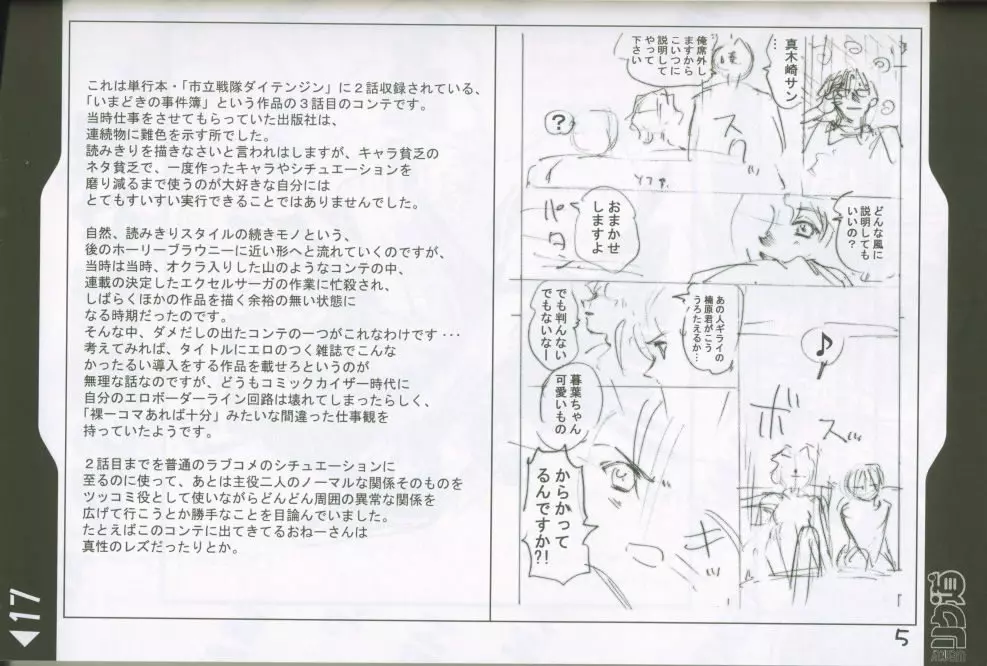 これは単行本・「市立戦隊ダイテンジン」に２話収録されている、
「いまどきの事件簿」という作品の３話目のコンテです。
当時仕事をさせてもらっていた出版社は、
連続物に難色を示す所でした。
読みきりを描きなさいと言われはしますが、キャラ貧乏の
ネタ貧乏で、一度作ったキャラやシチュエーションを
磨り減るまで使うのが大好きな自分には
とてもすいすい実行できることではありませんでした。
自然、読みきりスタイルの続きモノという、
後のホーリーブラウニーに近い形へと流れていくのですが、
当時は当時、オクラ入りした山のようなコンテの中、
連載の決定したエクセルサーガの作業に忙殺され、
しばらくほかの作品を描く余裕の無い状態に
なる時期だったのです。
そんな中、ダメだしの出たコンテの一つがこれなわけです・・・
考えてみれば、タイトルにエロのつく雑誌でこんな
かったるい導入をする作品を載せろというのが
無理な話なのですが、どうもコミックカイザー時代に
自分のエロボーダーライン回路は壊れてしまったらしく、
「裸一コマあれば十分」みたいな間違った仕事観を
持っていたようです。
２話目までを普通のラブコメのシチュエーションに
至るのに使って、あとは主役二人のノーマルな関係そのものを
ツッコミ役として使いながらどんどん周囲の異常な関係を
広げて行こうとか勝手なことを目論んでいました。
たとえばこのコンテに出てきてるおねーさんは
真性のレズだったりとか。
真木崎サン
…
俺席外し
ますから
こいつに
説明して
やって
下さい
スッ
?
ソファ
どんな風に
説明しても
いいの?
おまかせ
しますよ
パタン
あの人ギライの
楠原君がこう
うろたえるか…
でも判んない
でもないなー
♪
ボスッ
暮葉ちゃん
可愛いもの
からかって
るんですか?!
キッ
5
17